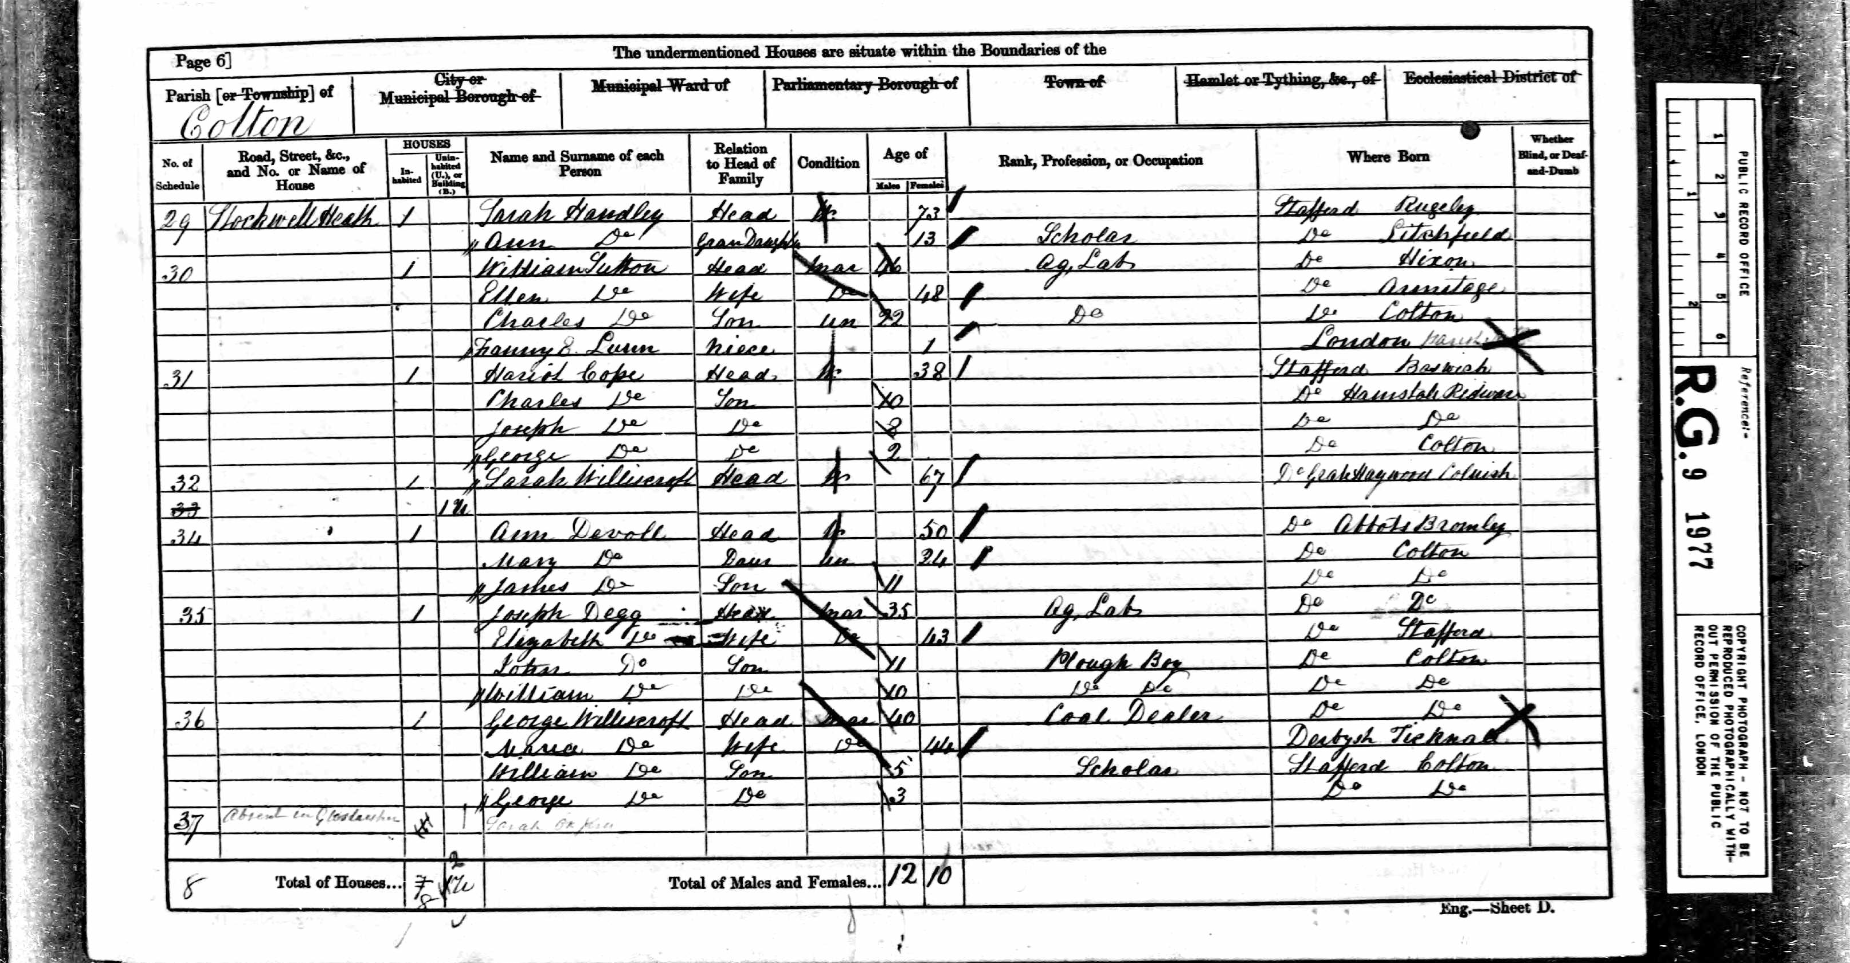 Page 6]
The undermentioned Houses are situate within the Boundaries of the
Parish [or Township] of
City or Municipal Borough of
Municipal Ward of
Parliamentary Borough of
Town of
Hamlet or Tything, &c., of
Ecclesiastical District of
Colton
No. of Schedule
Road, Street, &c., and No. or Name of House
HOUSES
In-habited
Unin-habited (U.), or Building (B.)
Name and Surname of each Person
Relation to Head of Family
Condition
Age of
Males
Females
Rank, Profession, or Occupation
Where Born
Whether Blind, or Deaf-and-Dumb
29 Stockwell Heath 1 Sarah Handley Head W 73 Stafford Rugeley
Ann Do GranDaughtr 13 Scholar Do Litchfield
30 1 William Sutton Head Mar 46 Ag, Lab Do Hixon
Ellen Do Wife Do 48 Do Armitage
Charles Do Son Un 22 Do Do Colton
Fanny E. Lunn Niece 1 London
31 1 Hariot Cope Head W 38 Stafford Baswich
Charles Do Son 10 Do Hamstall Ridware
Joseph Do Do Do Do
George Do Do 2 Do Colton
32 1 Sarah Williscroft Head W 67 Do Great Haywood Colwich
33 1 U
34 1 Ann Devall Head W 50 Do Abbots Bromley
Mary Do Daur Un 24 Do Colton
James Do Son 11 Do Do
35 1 Joseph Degg Head Mar 35 Ag, Lab Do Do
Elizabeth Do Wife Do 43 Do Stafford
John Do Son 11 Plough Boy Do Colton
William Do Do 10 Do Do Do Do
36 1 George Williscroft Head Mar 40 Coal Dealer Do Do
Maria Do Wife Do 44 Derbysh Ticknal
William Do Son 5 Scholar Stafford Colton
George Do Do 3 Do Do
37 Absent in 1 Sarah
8 Total of Houses... 7 8 2 1U Total of Males and Females... 12 10
Eng.—Sheet D.
PUBLIC RECORD OFFICE
1 2 3 4 5 6
1 2
Reference:-
R.G. 9 1977
COPYRIGHT PHOTOGRAPH - NOT TO BE REPRODUCED PHOTOGRAPHICALLY WITH-OUT PERMISSION OF THE PUBLIC RECORD OFFICE, LONDON